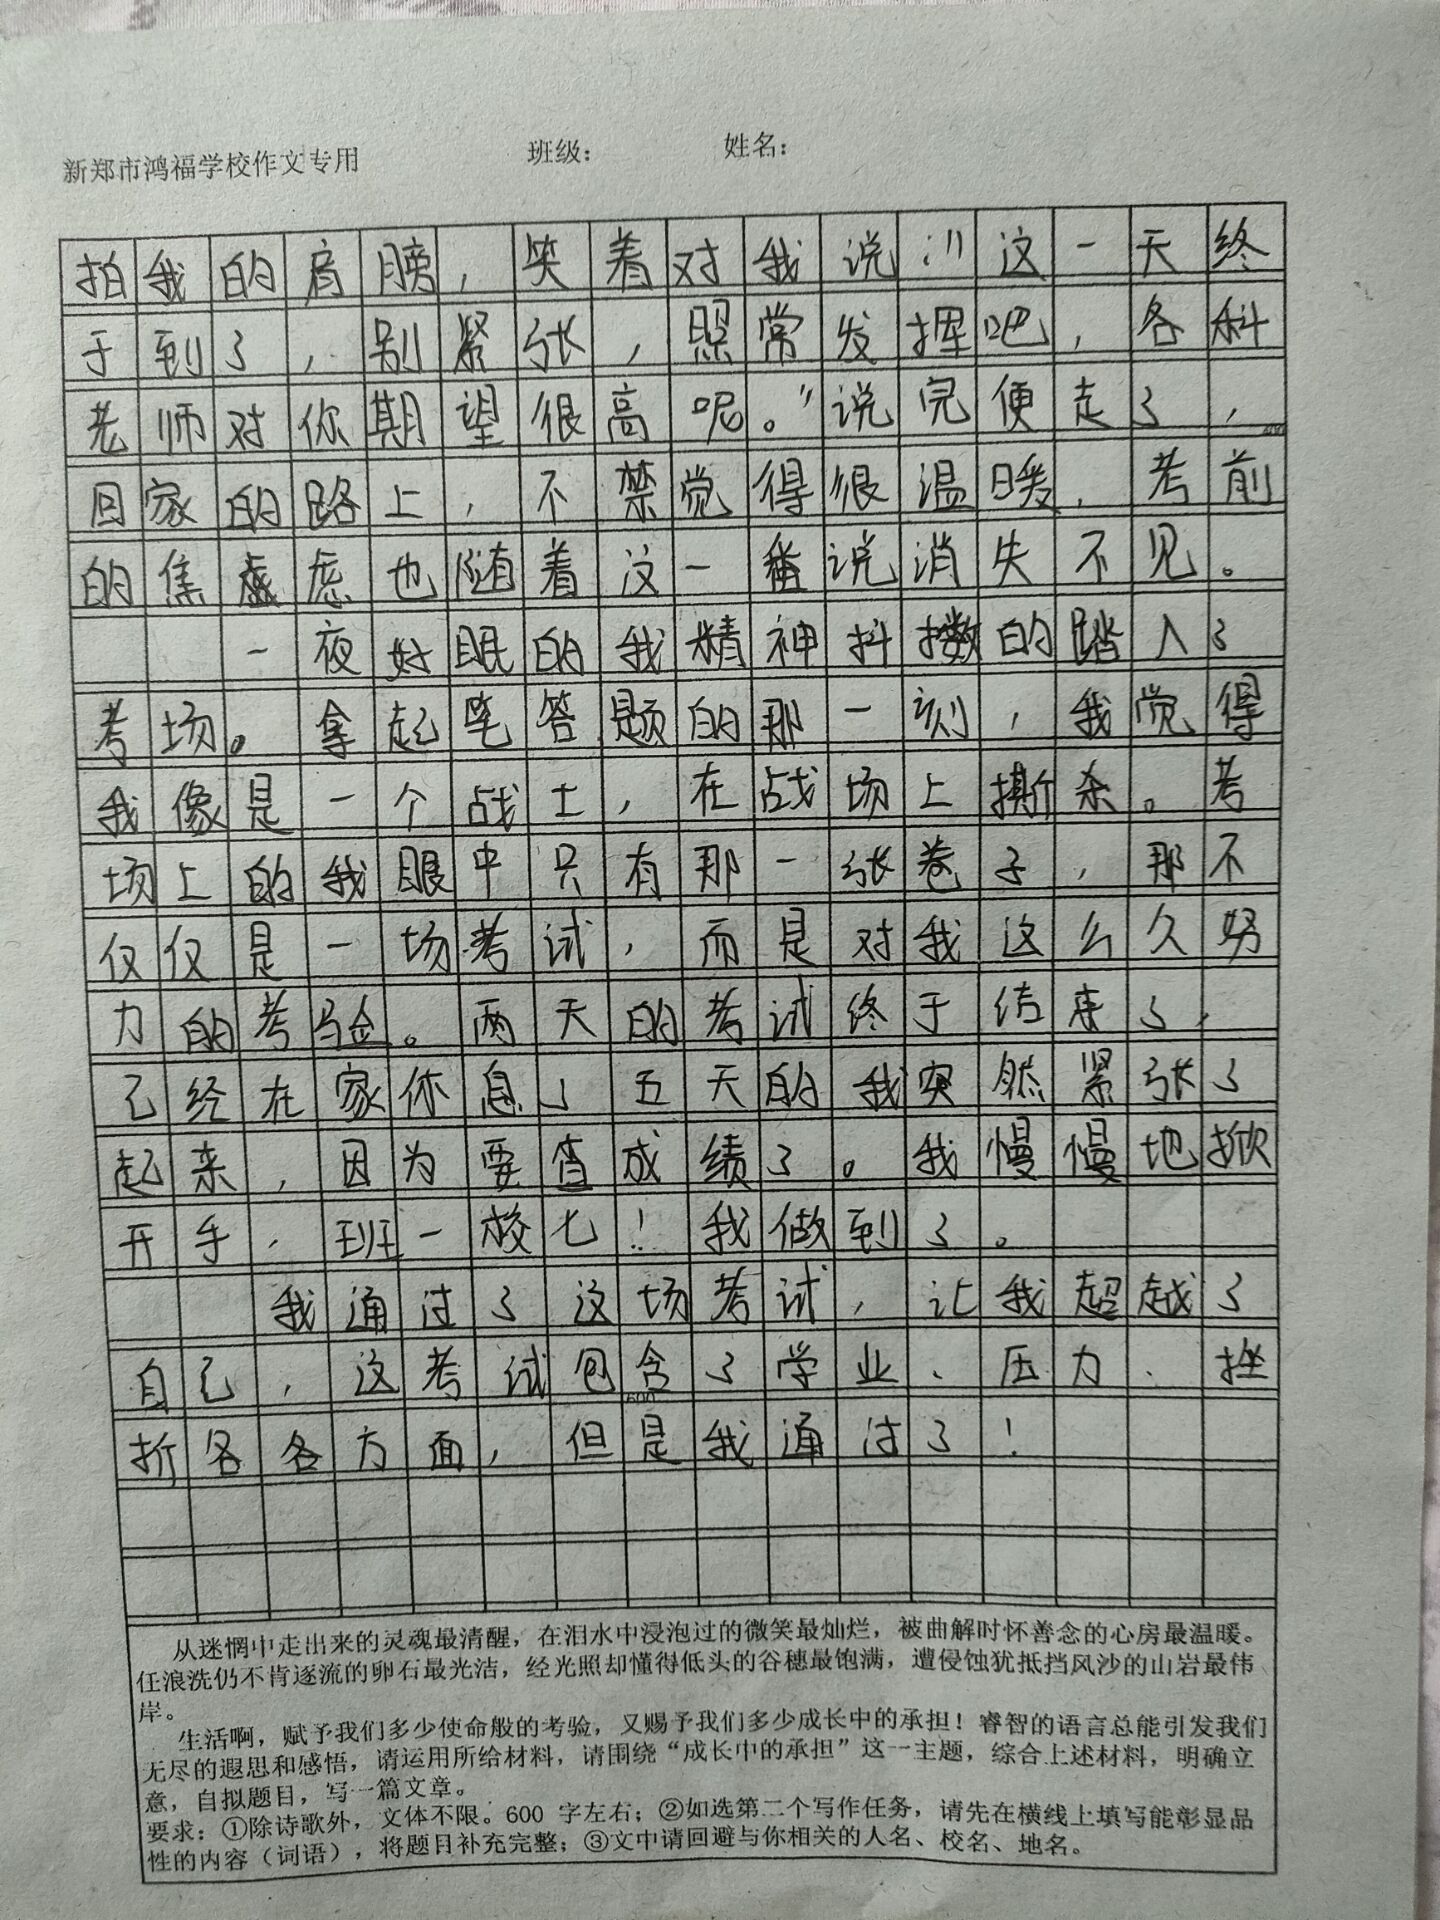 新郑市鸿福学校作文专用 班级： 姓名：
拍我的肩膀，笑着对我说：“这一天终
于到了，别紧张，照常发挥吧，各科
老师对你期望很高呢。”说完便走了，
回家的路上，不禁觉得很温暖，考前
的焦虑也随着这一番说消失不见。
一夜好眠的我精神抖擞的踏入了
考场。拿起笔答题的那一刻，我觉得
我像是一个战士，在战场上撕杀。考
场上的我眼中只有那一张卷子，那不
仅仅是一场考试，而是对我这么久努
力的考验。两天的考试终于结束了，
已经在家休息了五天的我突然紧张了
起来，因为要查成绩了。我慢慢地掀
开手，班一校七！我做到了。
我通过了这场考试，让我超越了
自己，这考试包含了学业、压力、挫
600
折各各方面，但是我通过了！
从迷惘中走出来的灵魂最清醒，在泪水中浸泡过的微笑最灿烂，被曲解时怀善念的心房最温暖。
任浪洗仍不肯逐流的卵石最光洁，经光照却懂得低头的谷穗最饱满，遭侵蚀犹抵挡风沙的山岩最伟
岸。
生活啊，赋予我们多少使命般的考验，又赐予我们多少成长中的承担！睿智的语言总能引发我们
无尽的遐思和感悟，请运用所给材料，请围绕“成长中的承担”这一主题，综合上述材料，明确立
意，自拟题目，写一篇文章。
要求：①除诗歌外，文体不限。600 字左右；②如选第二个写作任务，请先在横线上填写能彰显品
性的内容（词语），将题目补充完整；③文中请回避与你相关的人名、校名、地名。